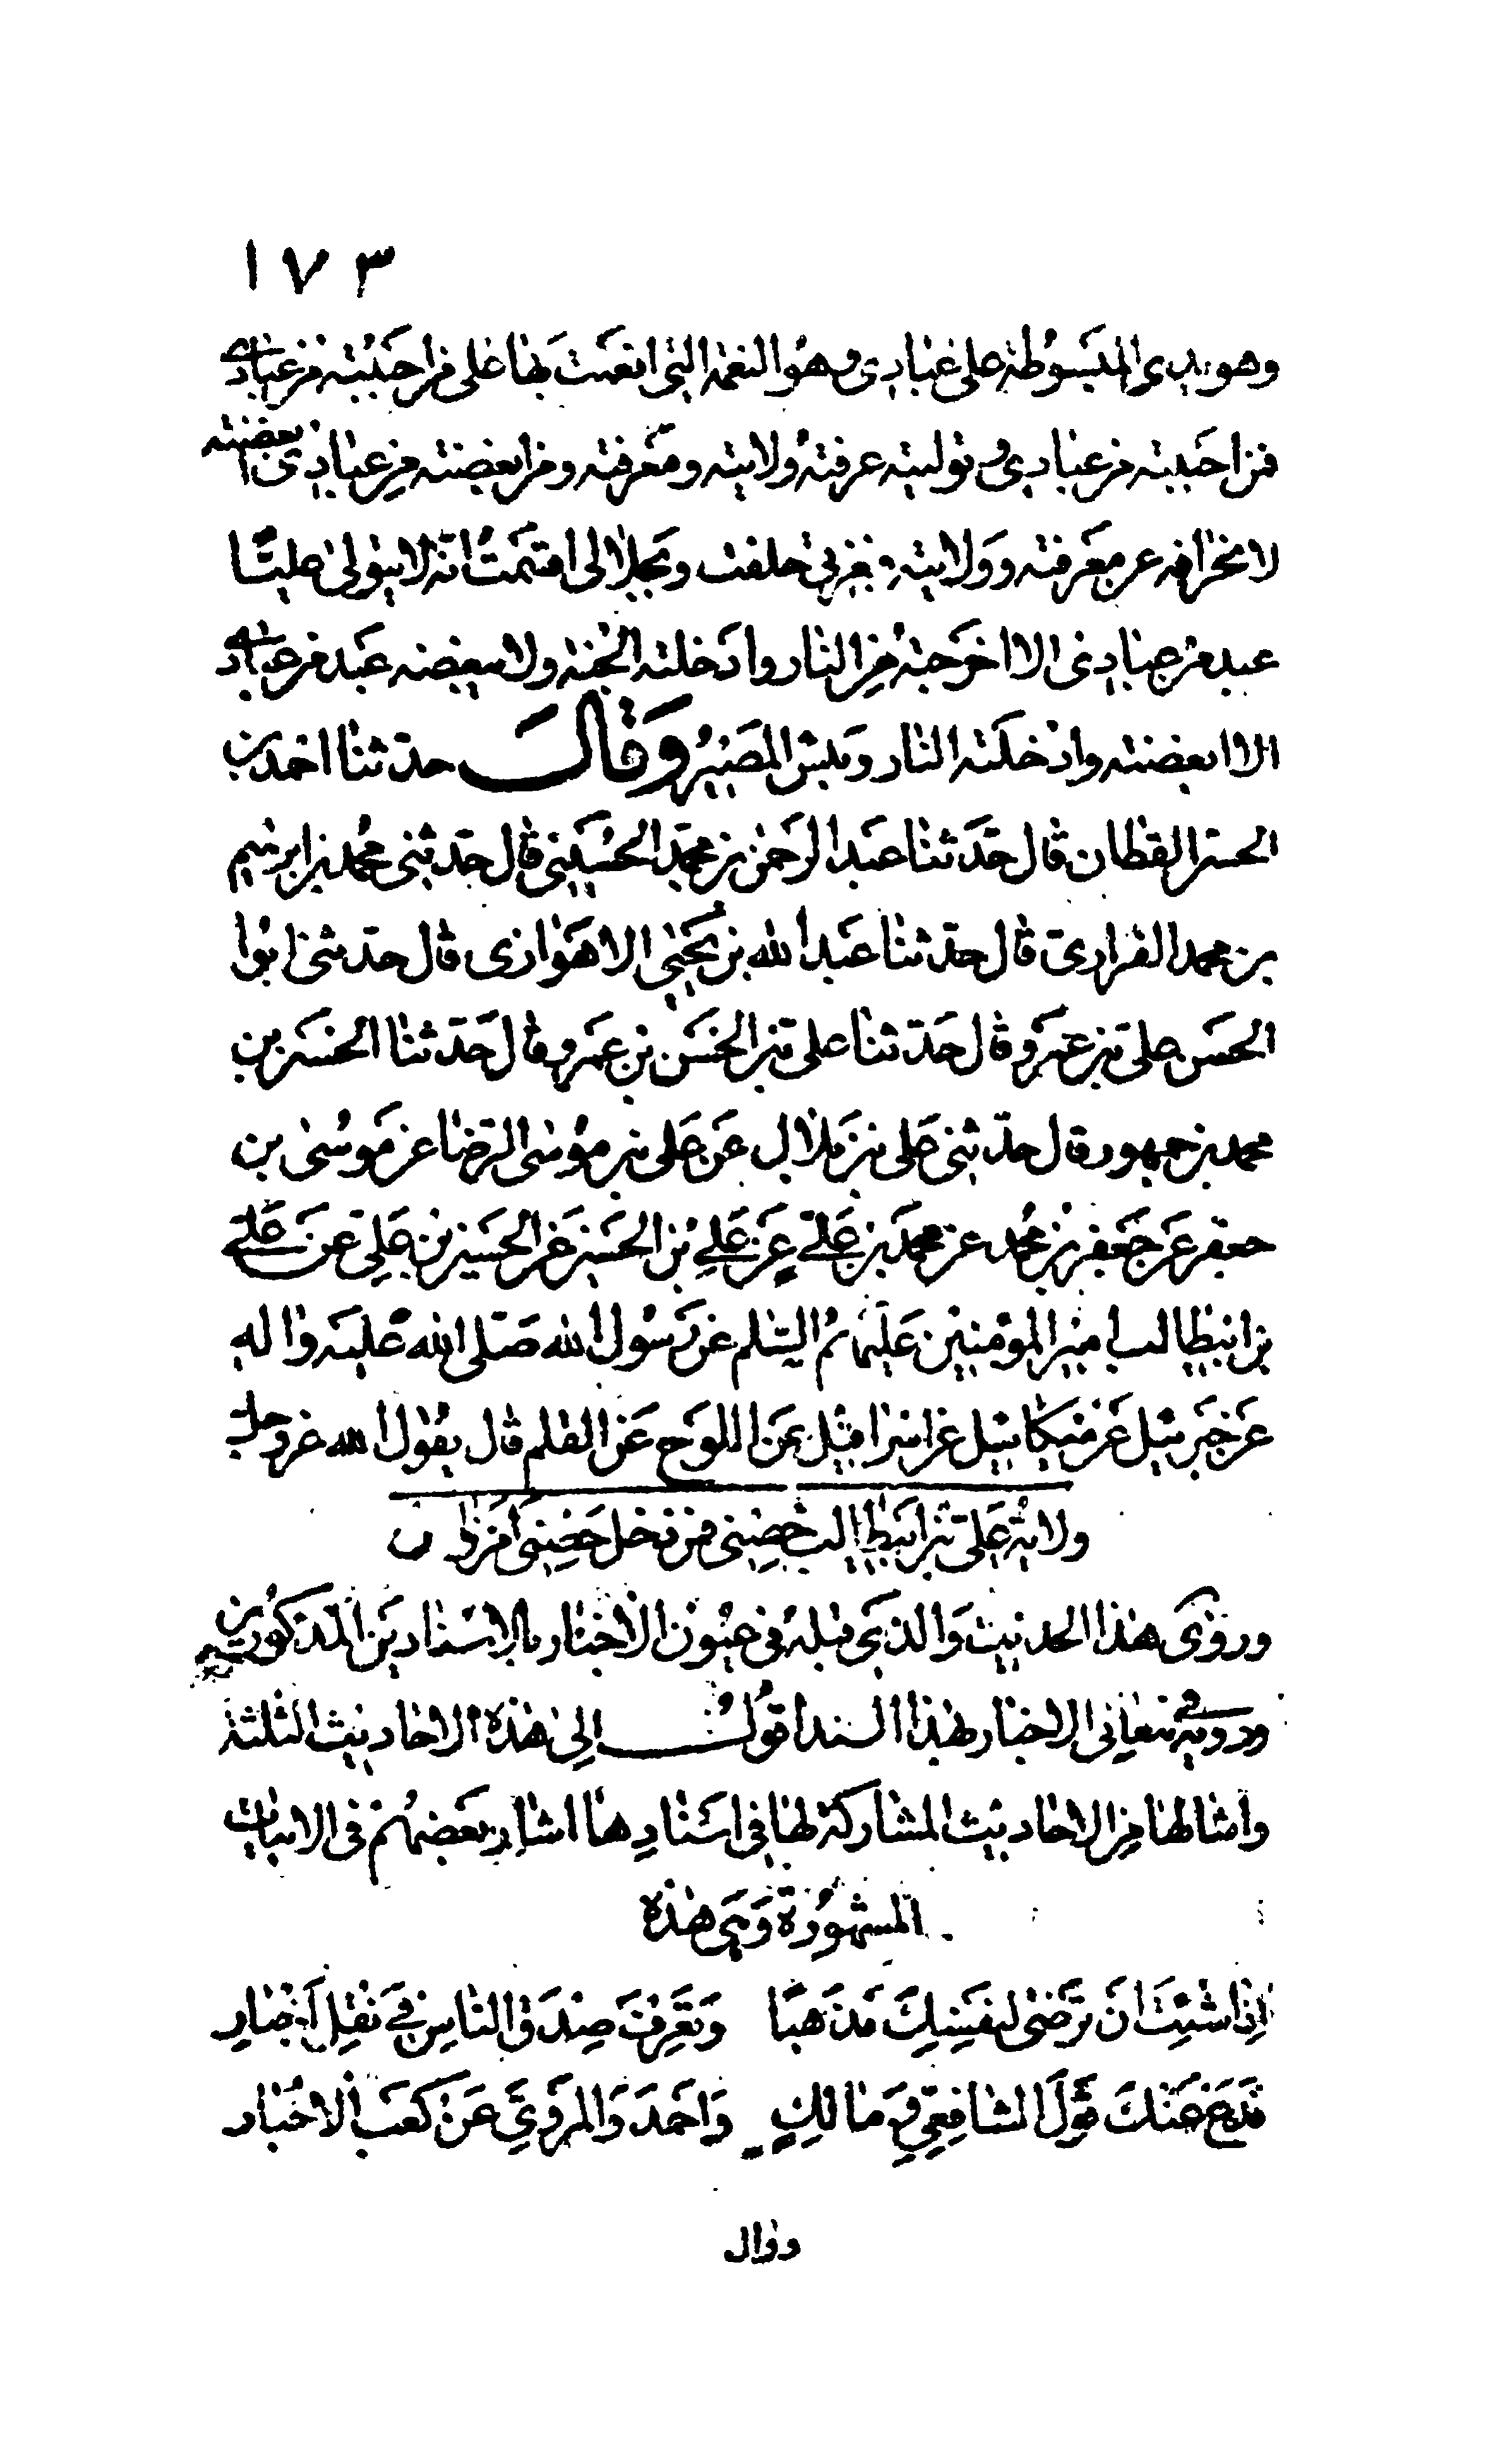 ١٧٣
وهو يدى المبسوطة على عبادى وهو النعمة التى انعمت بها على من احببته من عبادى
فمن احببته من عبادى و توليته عرفته ولايته ومعرفته ومن ابغضته من عبادى ابغضته
لانحرافه عن معرفته وولايته فبعزتى حلفت وبجلالى اقسمت انه لا يتولى عليا
عبد من عبادى الا اخرجته من النار وادخلته الجنة ولا يبغضه عبد من عبادى
الا ابغضته وادخلته النار وبئس المصير وقال حدثنا احمد بن
الحسن القطان قال حدثنا عبد الرحمن بن محمد الحسينى قال حدثنى محمد بن ابرهيم
بن محمد الفزارى قال حدثنا عبد الله بن يحيى الاهوازى قال حدثنى ابوا
الحسن على بن عمرو قال حدثنا على بن الحسن بن عمرو قال حدثنا الحسن بن
محمد بن جمهور قال حدثنى على بن بلال عن على بن موسى الرضا عن موسى بن
جعفر عن جعفر بن محمد عن محمد بن على عن على بن الحسين عن الحسين بن على عن على
بن ابيطالب امير المؤمنين عليهم السلم عن رسول الله صلى الله عليه واله
عن جبرئيل عن ميكائيل عن اسرافيل عن اللوح عن القلم قال يقول الله عز وجل
ولاية على بن ابيطالب حصنى فمن دخل حصنى امن نارى
وروى هذا الحديث والذى قبله فى عيون الاخبار بالاسنادين المذكورين
ورويه فى معانى الاخبار بهذا السند اقول الى هذه الاحاديث الثلثة
وامثالها من الاحاديث المشاركة لها فى اسنادها اشار بعضهم فى الابيات
المشهورة وهى هذه
اذا شئت ان ترضى لنفسك مذهبا وتعرف صدق الناس فى نقل اخبار
فدع عنك قول الشافعى ومالك واحمد والمروى عن كعب الاخبار
ووال